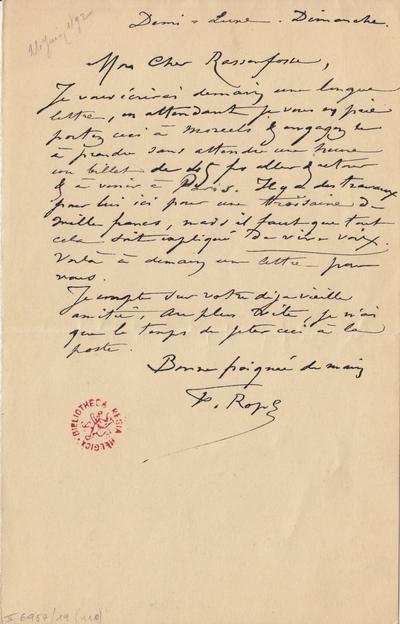 21 juin 1892
Demi-Lune. Dimanche.
Mon Cher Rassenfosse,
Je vous écrirai demain une longue
lettre, en attendant je vous en prie
portez ceci à & engagez le
à prendre sans attendre une heure
un billet de 45 frs aller & retour
& à venir à Paris. Il y a des travaux
pour lui ici pour une troisaine de
mille francs, mais il faut que tout
cela soit expliqué de vive voix.
Voilà à demain une lettre pour
vous.
Je compte sur votre déjà vieille
amitié, au plus vite, je n'ai
que le temps de jeter ceci à la
poste.
Bonne poignée de main
F. Rops
BIBLIOTHECA REGIA BELGICA
II 6957/19 (110)